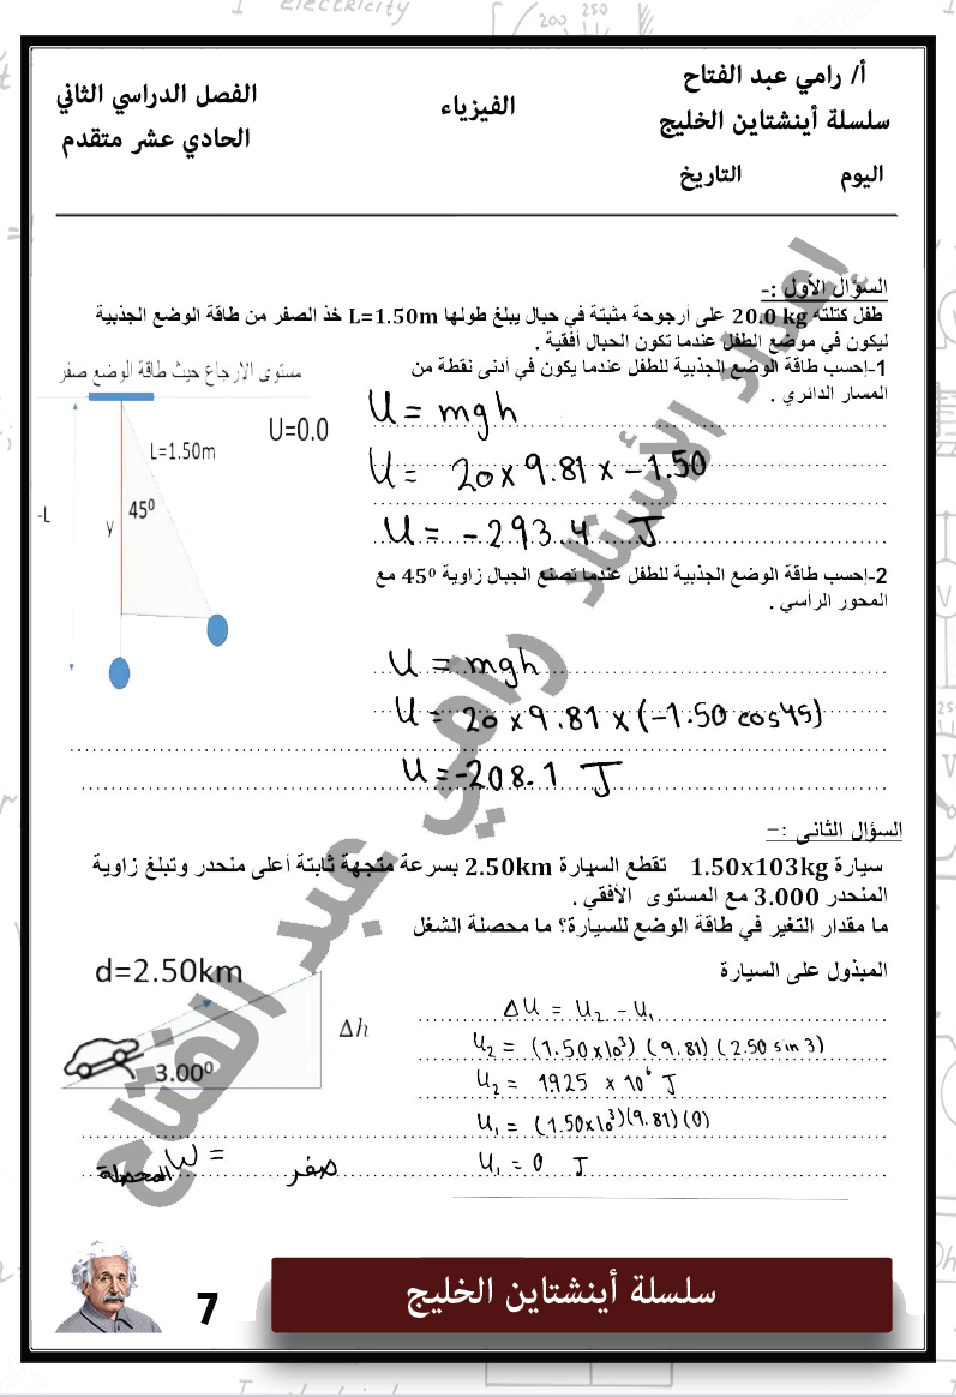 أ/ رامي عبد الفتاح
سلسلة أينشتاين الخليج
الفيزياء
الفصل الدراسي الثاني
الحادي عشر متقدم
اليوم
التاريخ
السؤال الأول :-
طفل كتلته 20.0 kg على أرجوحة مثبتة في حبال يبلغ طولها L=1.50m خذ الصفر من طاقة الوضع الجذبية
ليكون في موضع الطفل عندما تكون الحبال أفقية .
1-إحسب طاقة الوضع الجذبية للطفل عندما يكون في أدنى نقطة من
المسار الدائري .
مستوى الارجاع حيث طاقة الوضع صفر
U=0.0
L=1.50m
45⁰
y
-L
U = mgh
U = 20 x 9.81 x -1.50
U = -293.4 J
2-إحسب طاقة الوضع الجذبية للطفل عندما تصنع الحبال زاوية 45⁰ مع
المحور الرأسي .
U = mgh
U = 20 x 9.81 x (-1.50 cos45)
U = -208.1 J
السؤال الثانى :-
سيارة 1.50x103kg تقطع السيارة 2.50km بسرعة متجهة ثابتة أعلى منحدر وتبلغ زاوية
المنحدر 3.000 مع المستوى الأفقي .
ما مقدار التغير في طاقة الوضع للسيارة؟ ما محصلة الشغل
المبذول على السيارة
d=2.50km
Δh
3.00⁰
ΔU = U₂ - U₁
U₂ = (1.50x10³) (9.81) (2.50 sin 3)
U₂ = 1925 x 10⁶ J
U₁ = (1.50x10³)(9.81)(0)
U₁ = 0 J
W المحصلة = صفر
إعداد الأستاذ رامي عبد الفتاح
7
سلسلة أينشتاين الخليج